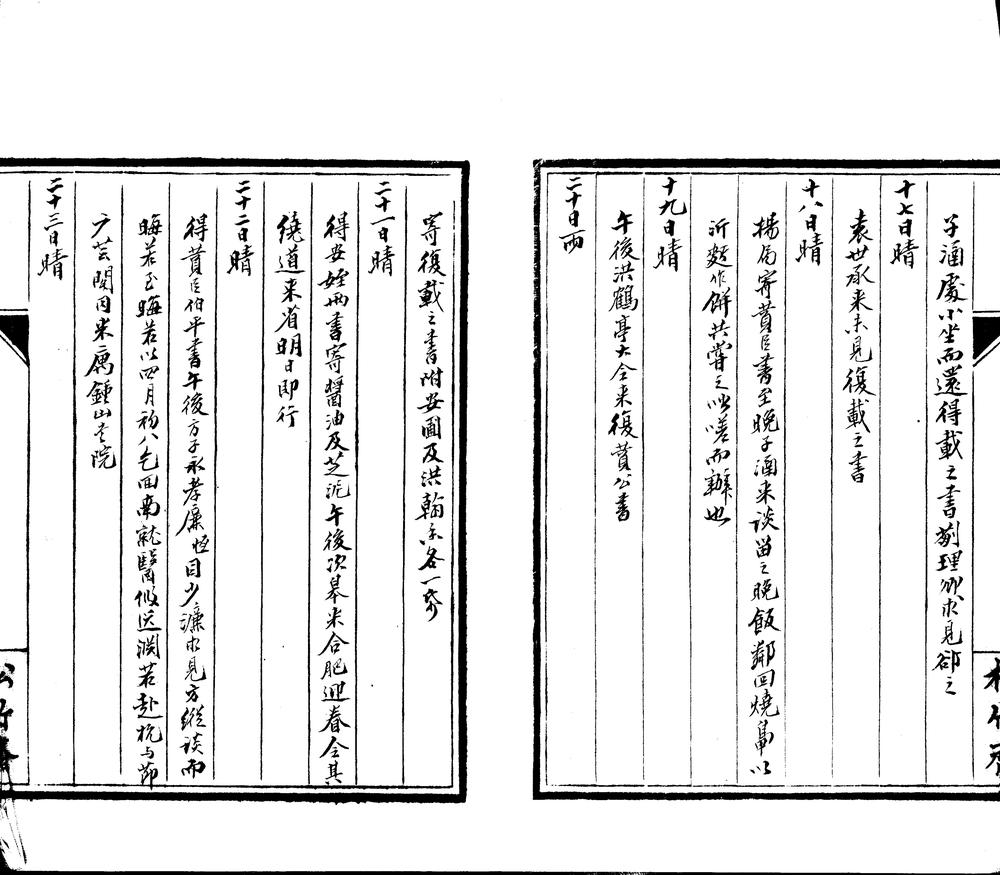 子涵處小坐而還得載之書劉理卿求見卻之
十七日晴
袁世承来未見復載之書
十八日晴
楊局寄蕡臣書至晚子涵来谈留之晚飯鄰回燒鳧以
沂麪作餅共嘗之咄嗟而辦也
十九日晴
午後洪鶴亭大令来復蕡公書
二十日雨
寄復載之書附安圃及洪翰各一
二十一日晴
得安姪兩書寄醬油及芝泥午後次皋米合肥迎眷令其
繞道来省明日即行
二十二日晴
得蕡臣伯平書午後方子永孝廉恆目少濂求見方縱谈而
晦若至晦若以四月初八乞回南就醫似送淵若赴杭与節
广芸閣因米厲鍾山書院
二十三日晴
松竹齋